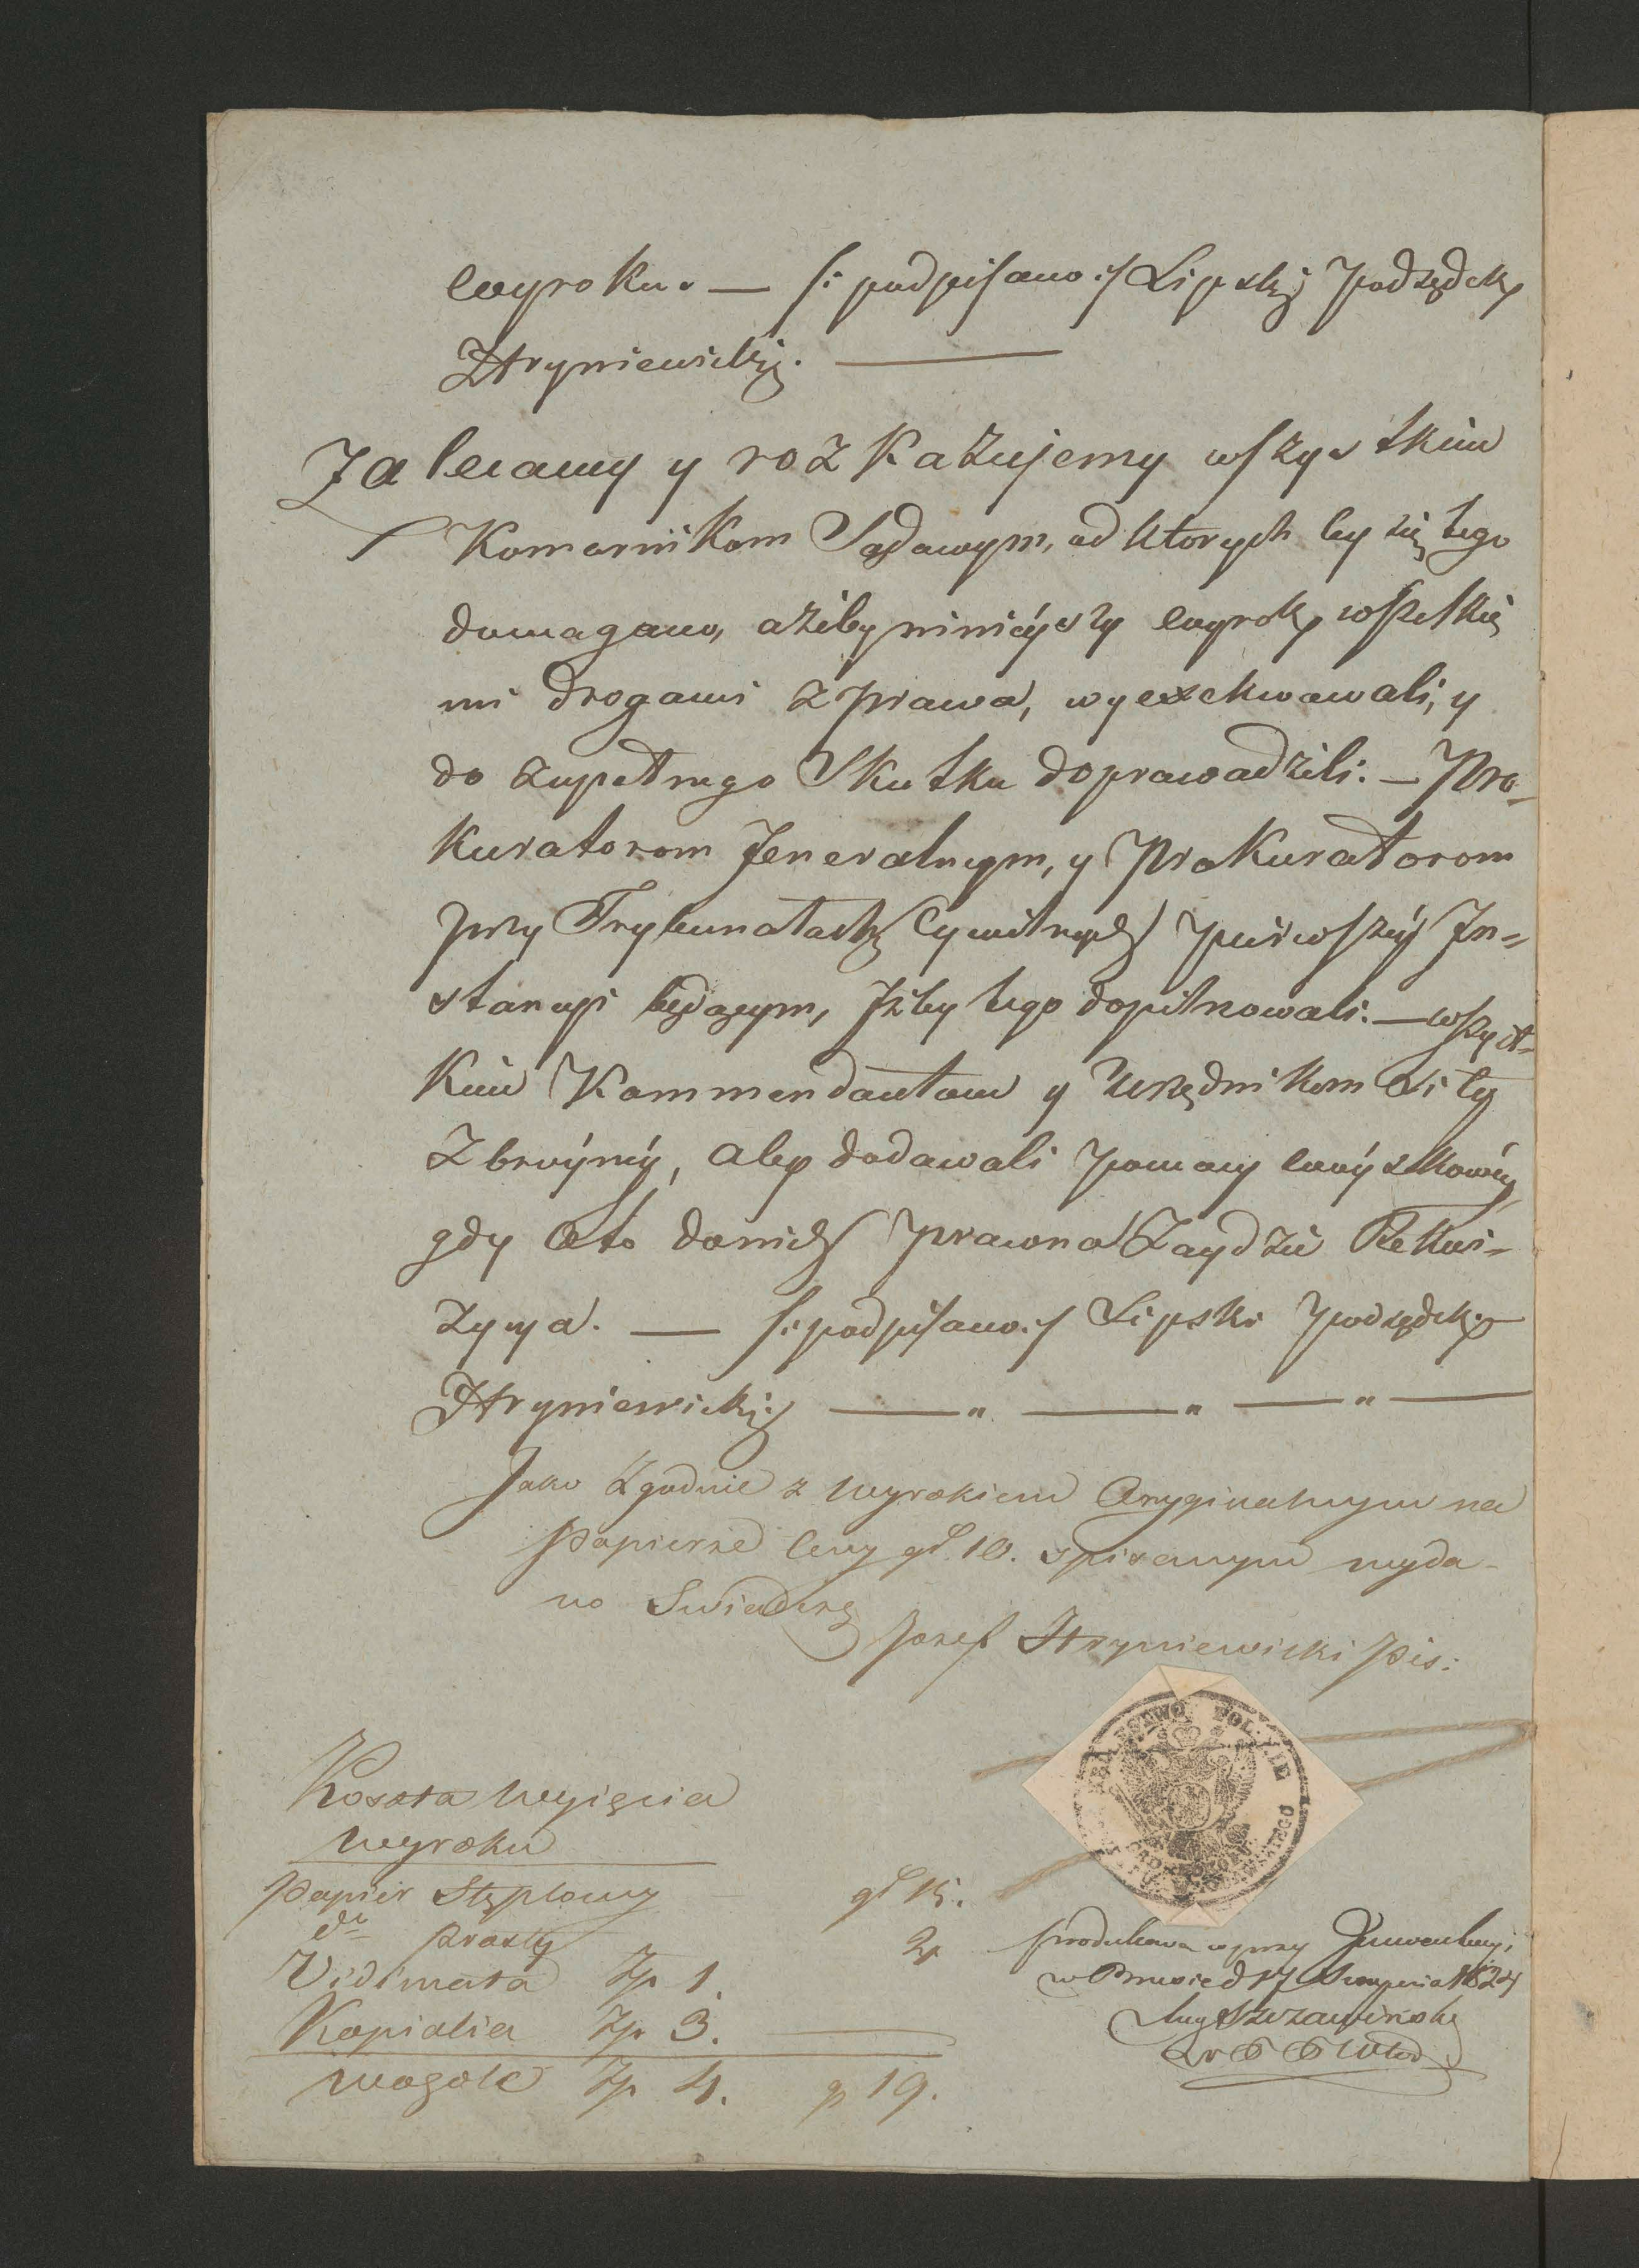 wyroku. — /: podpisano :/ Lipski Podsędek
Hryniewicki. —
Zalecamy y rozkazujemy wszystkim
Komornikom Sądowym, od ktorych by się tego
domagano, ażeby ninieyszy wyrok wszelkie
mi drogami z prawa, wyexekwowali, y
do zupełnego Skutku doprowadzili. — Pro-
kuratorom Jeneralnym, y Prokuratorom
przy Trybunałach Cywilnych pierwszey In=
stancyi będącym, Iżby tego dopilnowali. — wszyst-
kim Kommendantom y Urzędnikom Siły
Zbroyney, aby dodawali pomocy woyskowey
gdy o to do nich prawna Zaydzie Rekwi=
zycya. — /: podpisano :/ Lipski Podsędek
Hryniewicki — „ — „ — „ —
Jako Zgodnie z Wyrokiem Oryginalnym na
Papierze Ceny gł. 10. spisanym wyda-
no Swiadczę
Jozef Hryniewicki Pis:
KRÓLESTWO POLSKIE
Koszta Wyięcia
Wyroku
Papier Stęplowy — gł 15.
do prosty 2
Vidimata Zp 1.
Kopialia Zp 3. —
Wogole Zp 4. g 19.
produkowa w przy Inwentacyi
w Brzesciu d 17 Sierpnia 1824